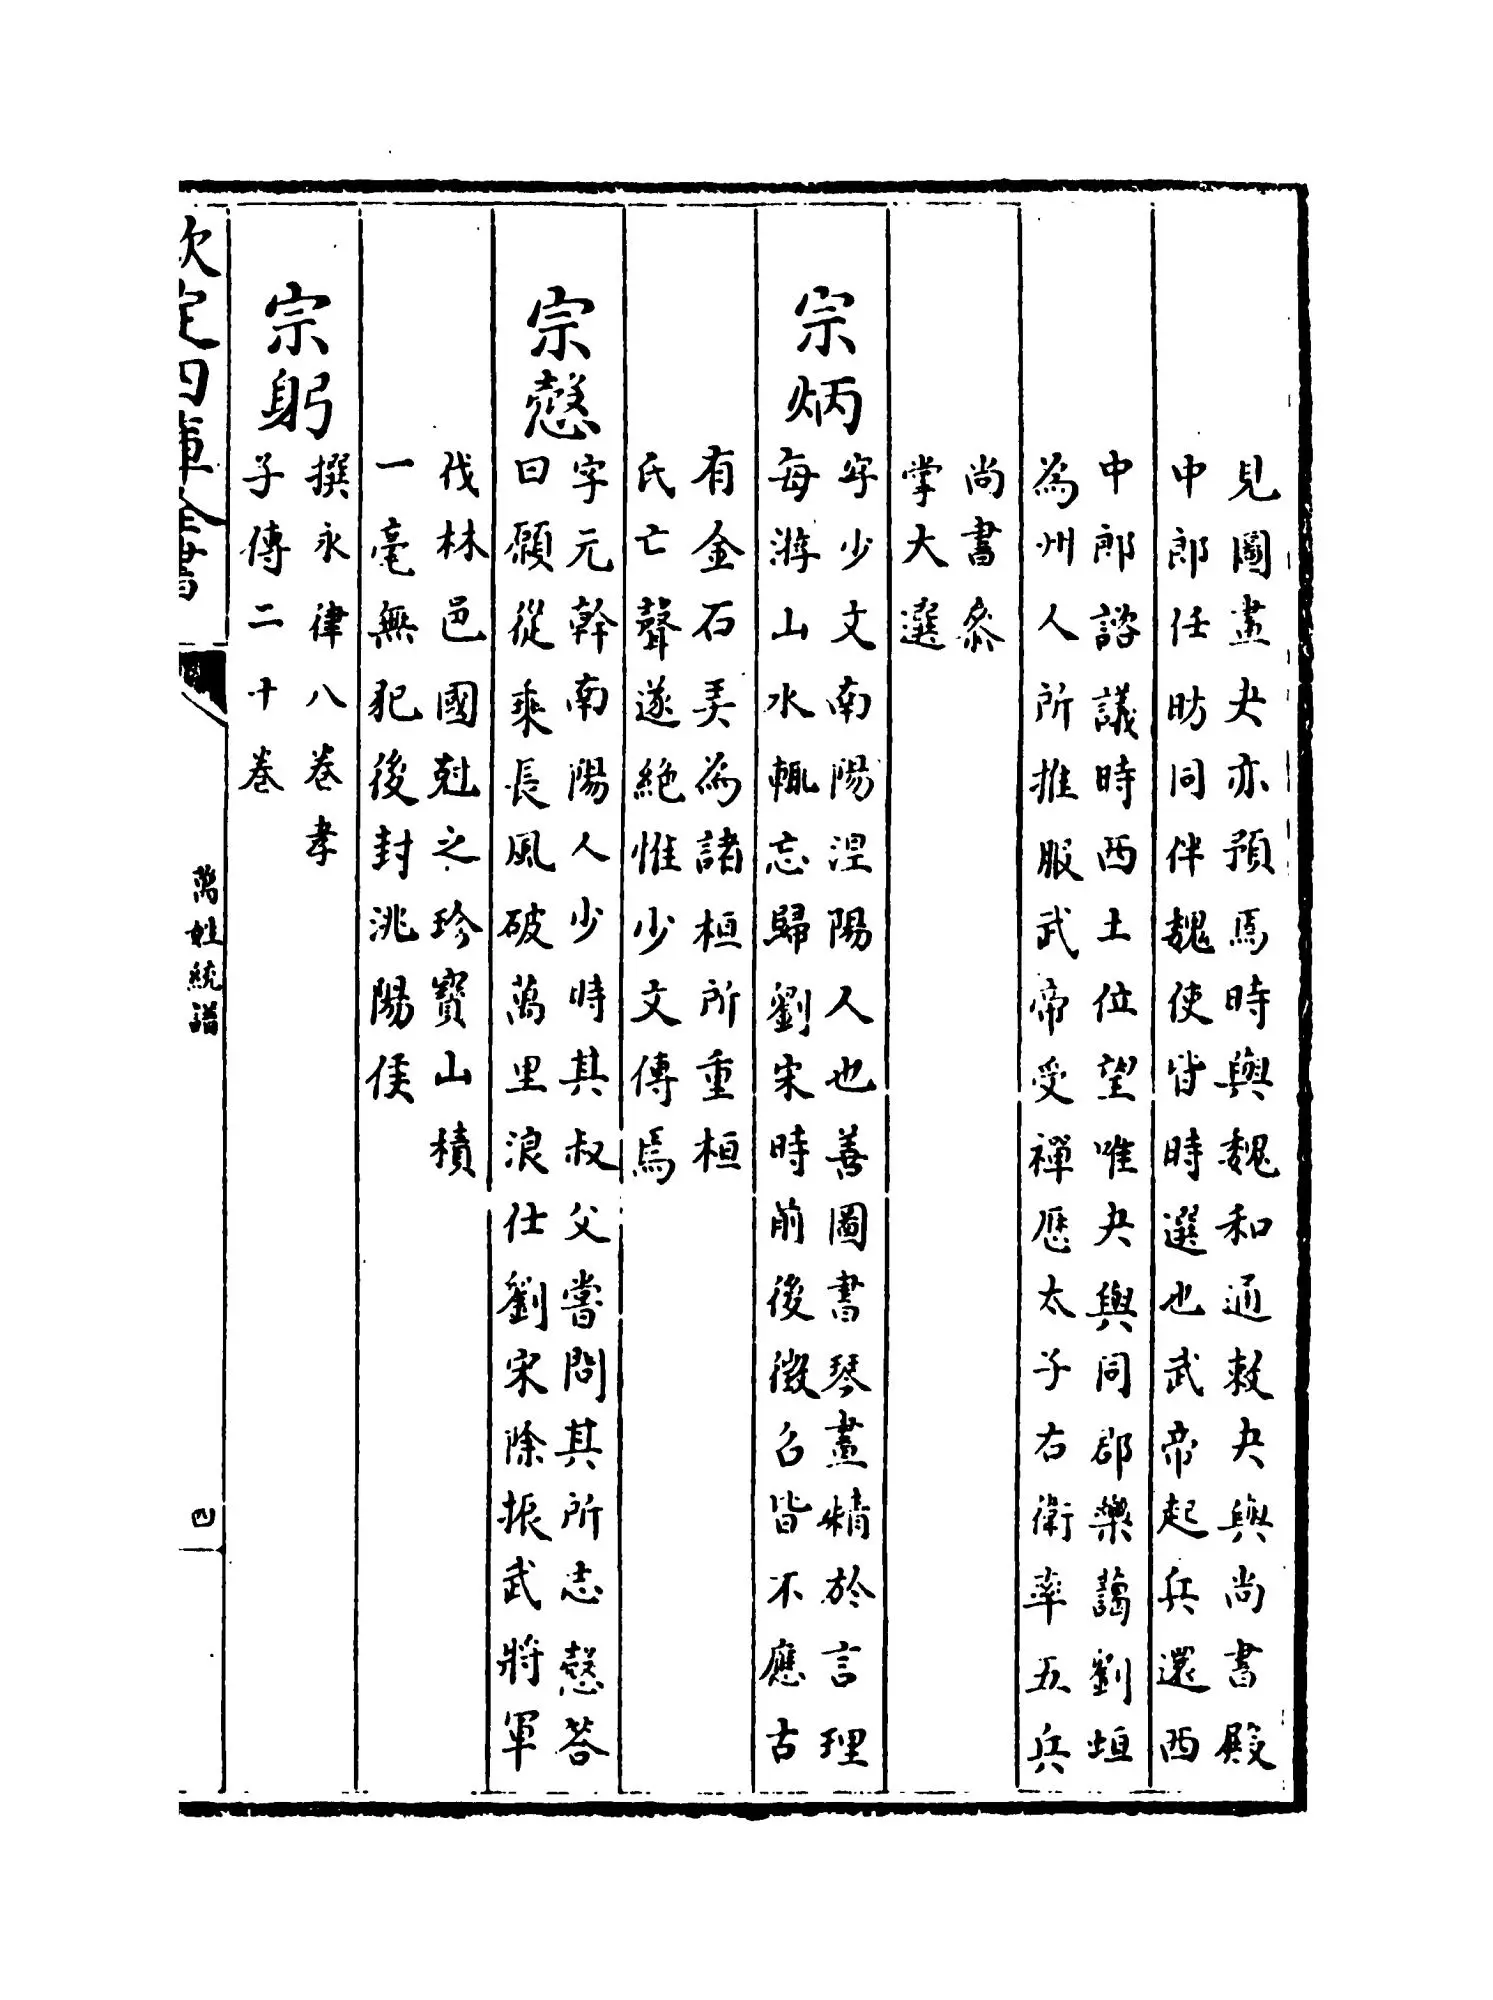 見圖畫夬亦預焉時與魏和通敕夬與尚書殿
中郎任昉同伴魏使皆時選也武帝起兵還西
中郎諮議時西土位望唯夬與同郡樂藹劉坦
為州人所推服武帝受禪歷太子右衛率五兵
尚書叅
掌大選
宗炳
字少文南陽涅陽人也善圖書琴畫精於言理
每游山水輒忘歸劉宋時前後徵召皆不應古
有金石弄為諸桓所重桓
氏亡聲遂絶惟少文傳焉
宗慤
字元幹南陽人少時其叔父嘗問其所志慤荅
曰願從乘長風破萬里浪仕劉宋除振武將軍
伐林邑國尅之珍寶山積
一毫無犯後封洮陽侯
宗躬
撰永律八卷孝
子傳二十卷
欽定四庫全書
萬姓統譜
四